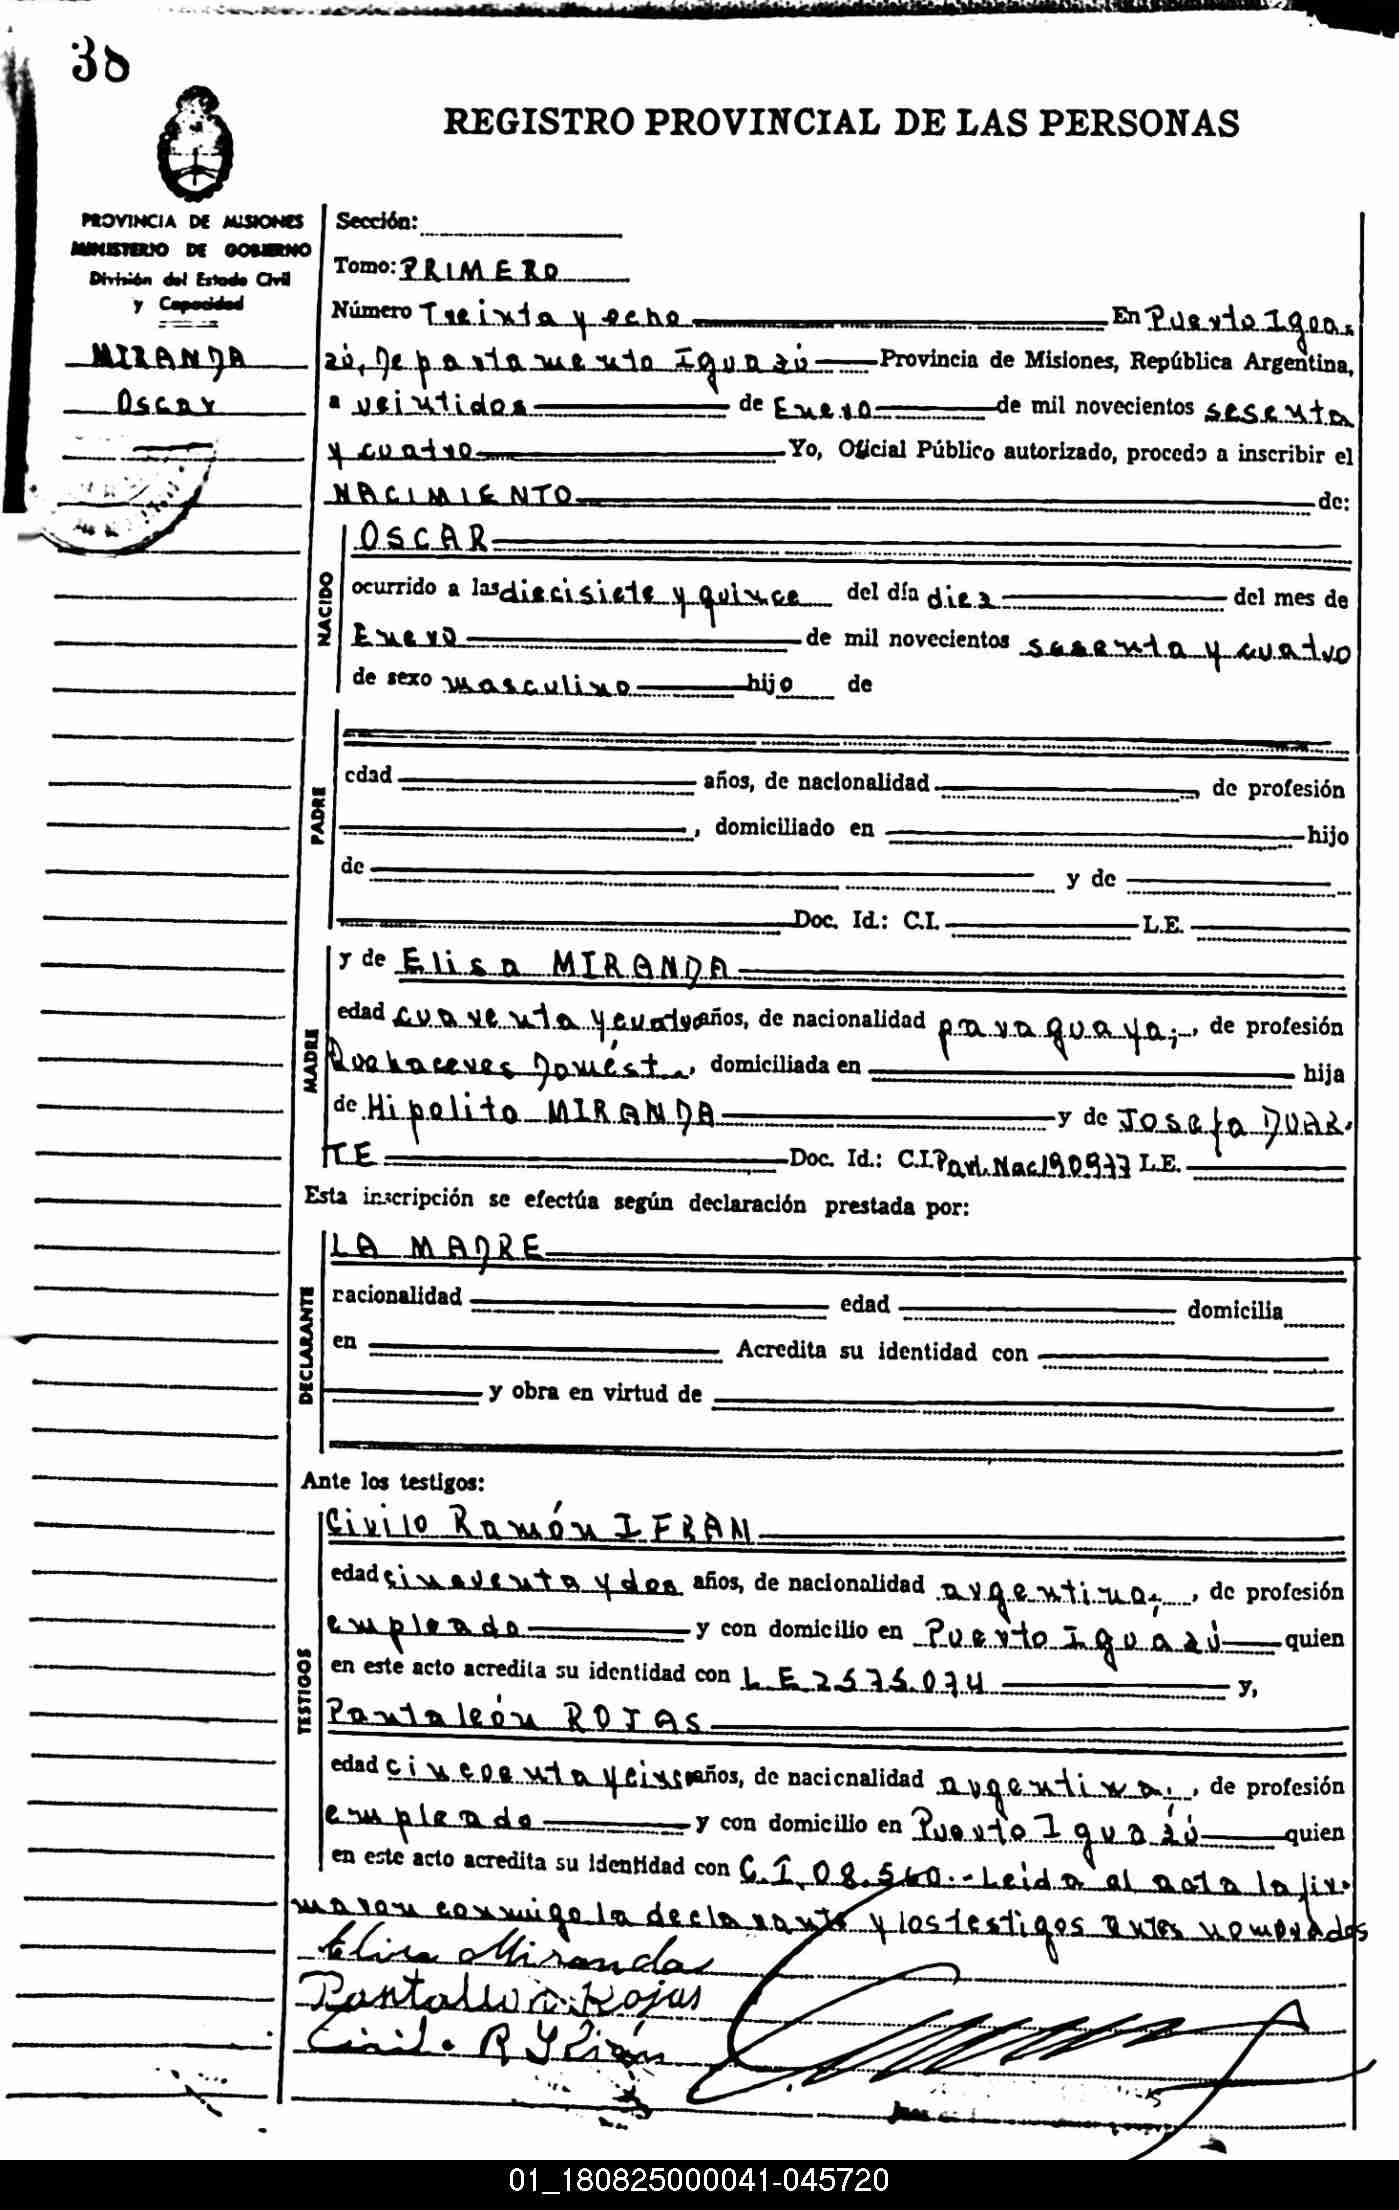 38
REGISTRO PROVINCIAL DE LAS PERSONAS
PROVINCIA DE MISIONES
MINISTERIO DE GOBIERNO
División del Estado Civil
y Capacidad
MIRANDA
Oscar
Sección:
Tomo: PRIMERO
Número Treinta y ocho En Puerto Igua-
zú, Departamento Iguazú Provincia de Misiones, República Argentina,
a veintidos de Enero de mil novecientos sesenta
y cuatro Yo, Oficial Público autorizado, procedo a inscribir el
NACIMIENTO de:
NACIDO
OSCAR
ocurrido a las diecisiete y quince del día diez del mes de
Enero de mil novecientos sesenta y cuatro
de sexo masculino hijo de
PADRE
edad años, de nacionalidad , de profesión
, domiciliado en hijo
de y de
Doc. Id.: C.I. L.E.
MADRE
y de Elisa MIRANDA
edad cuarenta y cuatro años, de nacionalidad paraguaya; , de profesión
Quehaceres Domést. , domiciliada en hija
de Hipolito MIRANDA y de Josefa DUAR-
TE Doc. Id.: C.I. Part. Nac 190977 L.E.
Esta inscripción se efectúa según declaración prestada por:
DECLARANTE
LA MADRE
nacionalidad edad domicilia
en Acredita su identidad con
y obra en virtud de
Ante los testigos:
TESTIGOS
Civilo Ramón IFRAN
edad cincuenta y dos años, de nacionalidad argentina; , de profesión
empleado y con domicilio en Puerto Iguazú quien
en este acto acredita su identidad con L.E. 2575.074 y,
Pantaleón ROJAS
edad cincuenta y cinco años, de nacionalidad argentina; , de profesión
empleado y con domicilio en Puerto Iguazú quien
en este acto acredita su identidad con C.I. 08.560.- Leida el acta la fir-
maron conmigo la declarante y los testigos antes nombrados
Elisa Miranda
Pantalleon Rojas
01_180825000041-045720